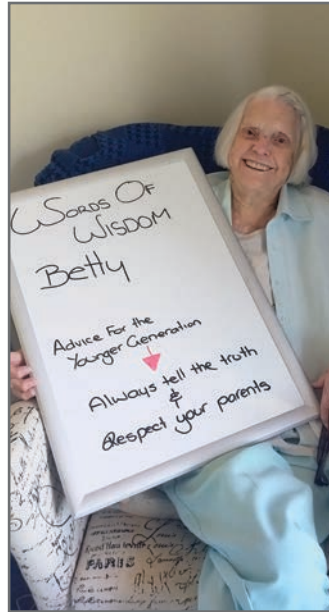 WORDS OF
WISDOM
Betty
Advice For the
Younger Generation
Always tell the truth
&
Respect your parents
PARIS